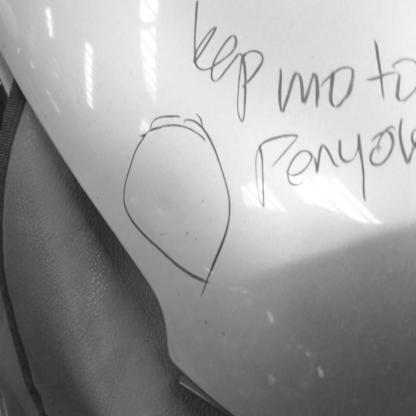 kep mo to
Penyok